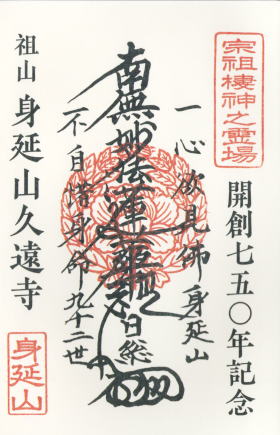 宗祖棲神之霊場
開創七五〇年記念
一心欲見佛 身延山
南無妙法蓮華経 日総
不自惜身命 九十二世
祖山 身延山久遠寺
身延山